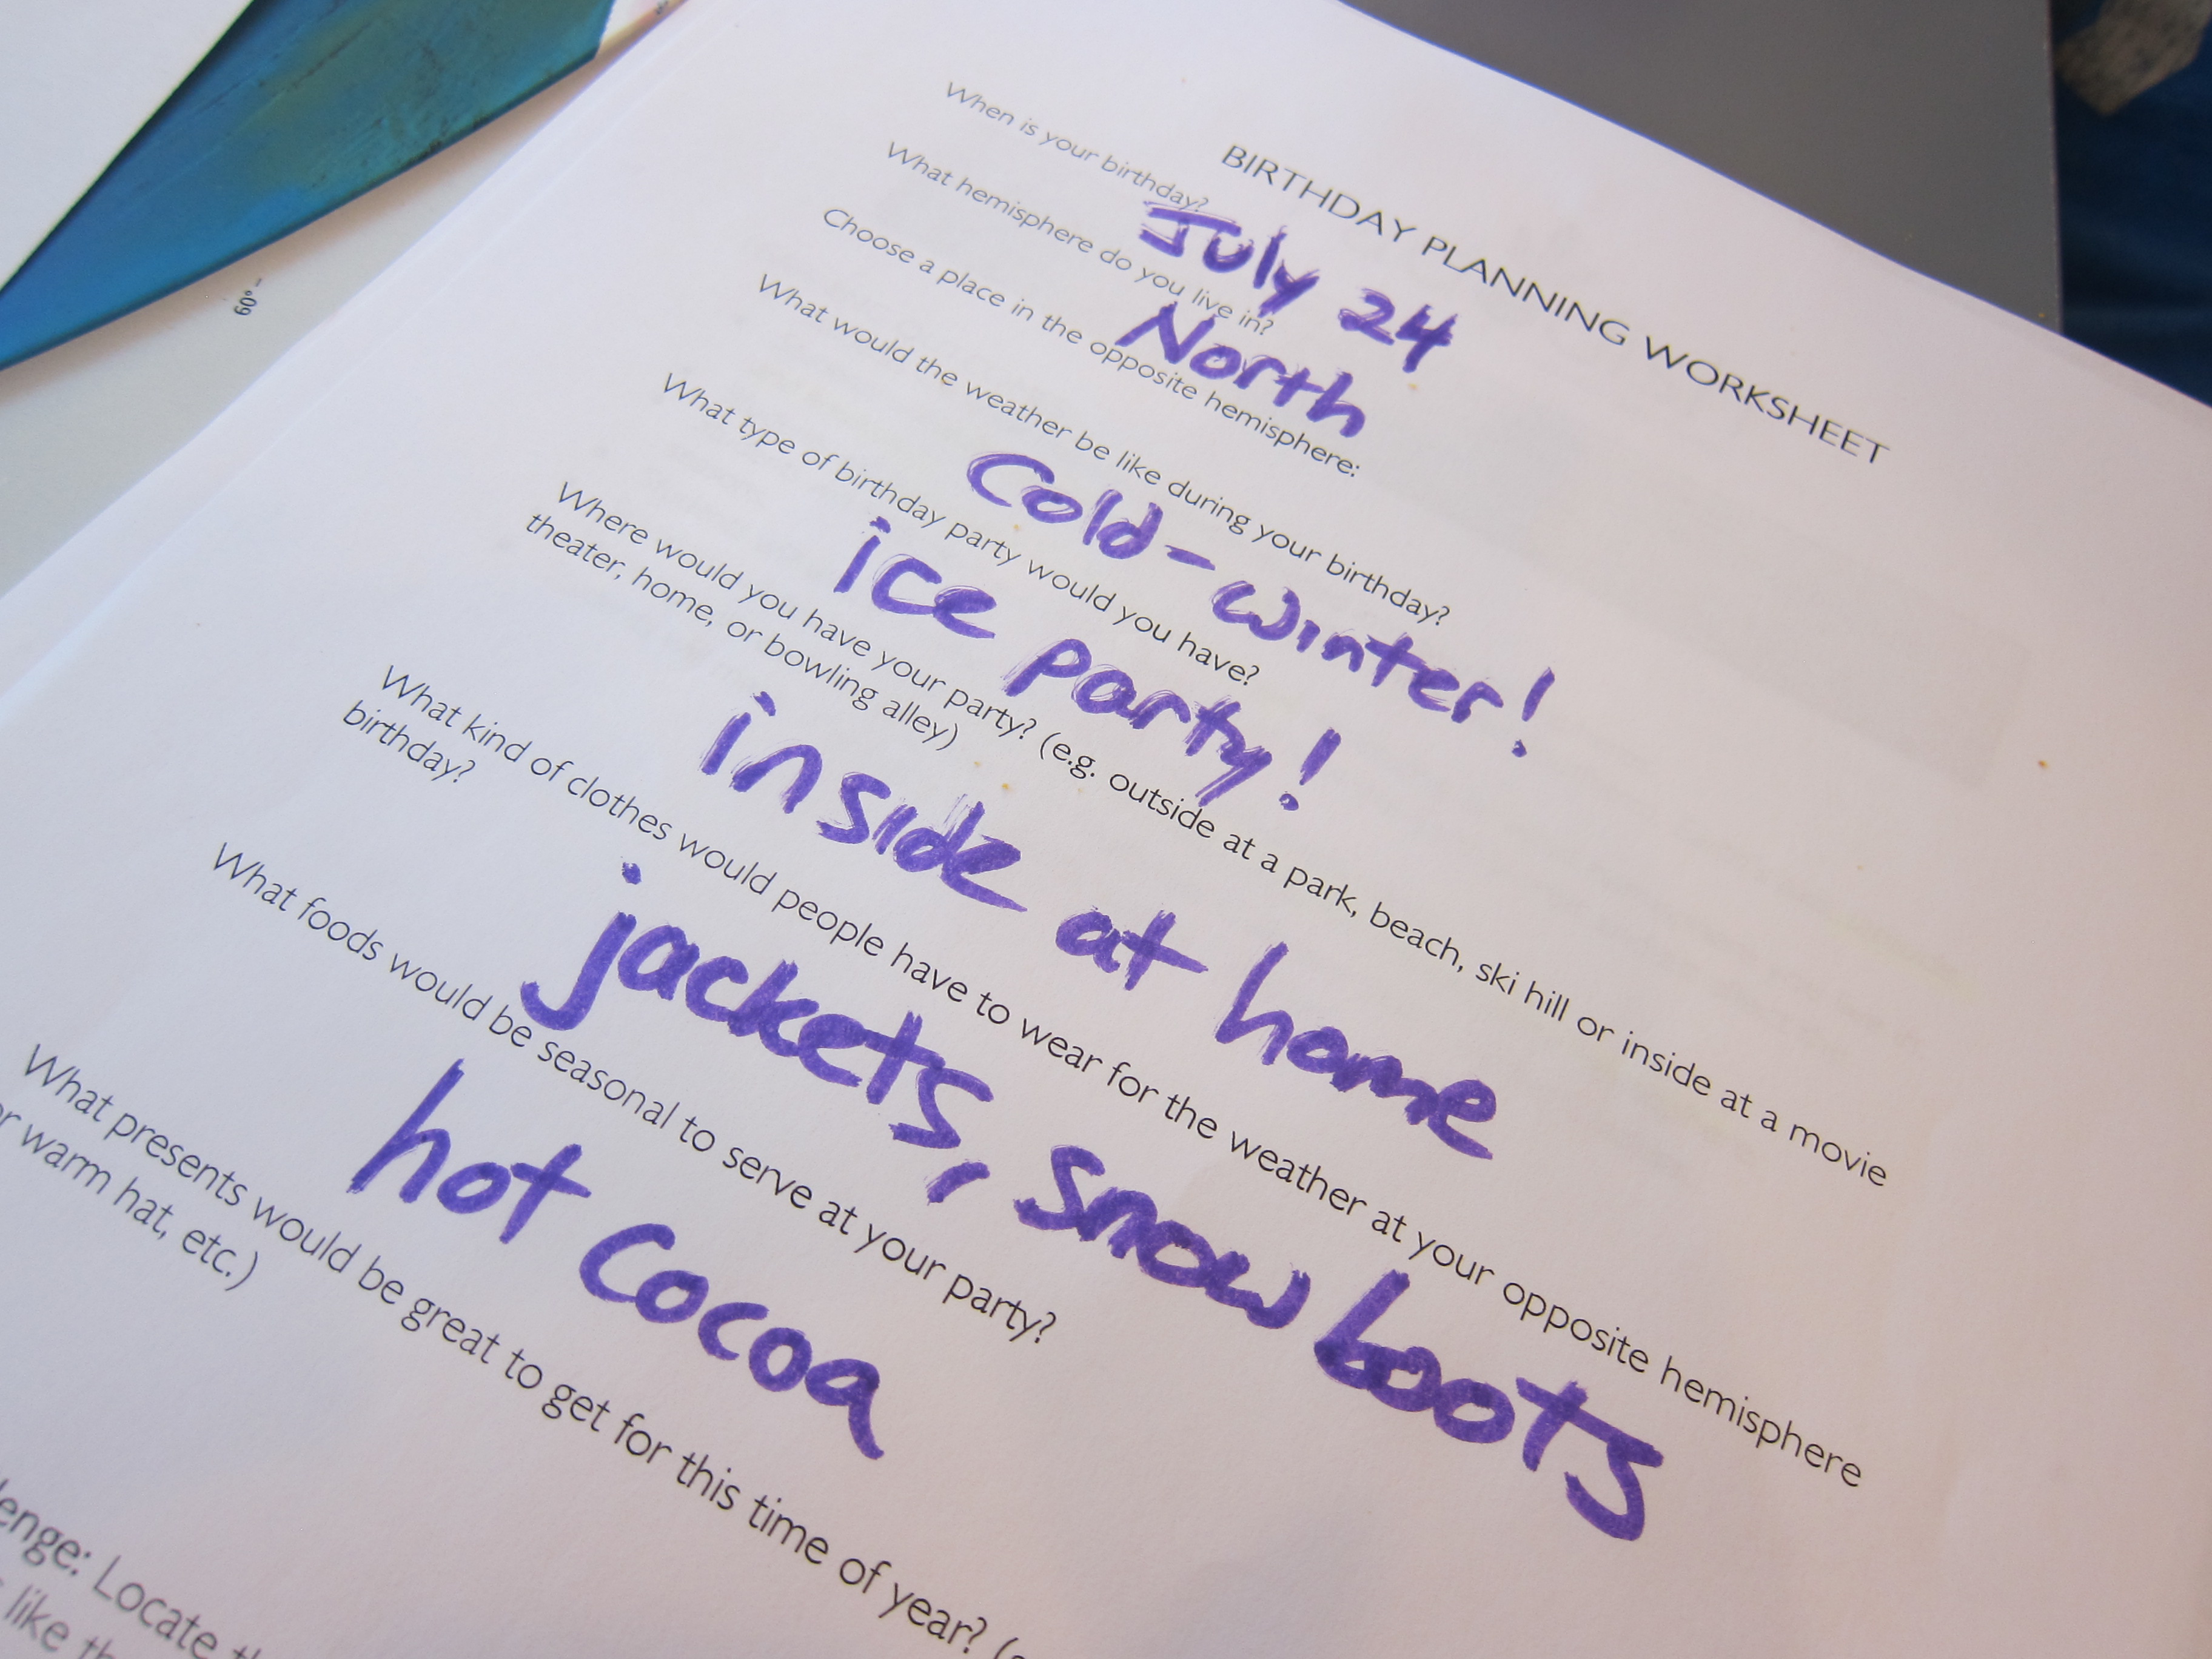 BIRTHDAY PLANNING WORKSHEET
When is your birthday?
July 24
What hemisphere do you live in?
North
Choose a place in the opposite hemisphere:
What would the weather be like during your birthday?
Cold-winter!
What type of birthday party would you have?
ice party!
Where would you have your party? (e.g. outside at a park, beach, ski hill or inside at a movie
theater, home, or bowling alley)
inside at home
What kind of clothes would people have to wear for the weather at your opposite hemisphere
birthday?
jackets, snow boots
What foods would be seasonal to serve at your party?
hot cocoa
What presents would be great to get for this time of year? (
or warm hat, etc.)
enge: Locate
like